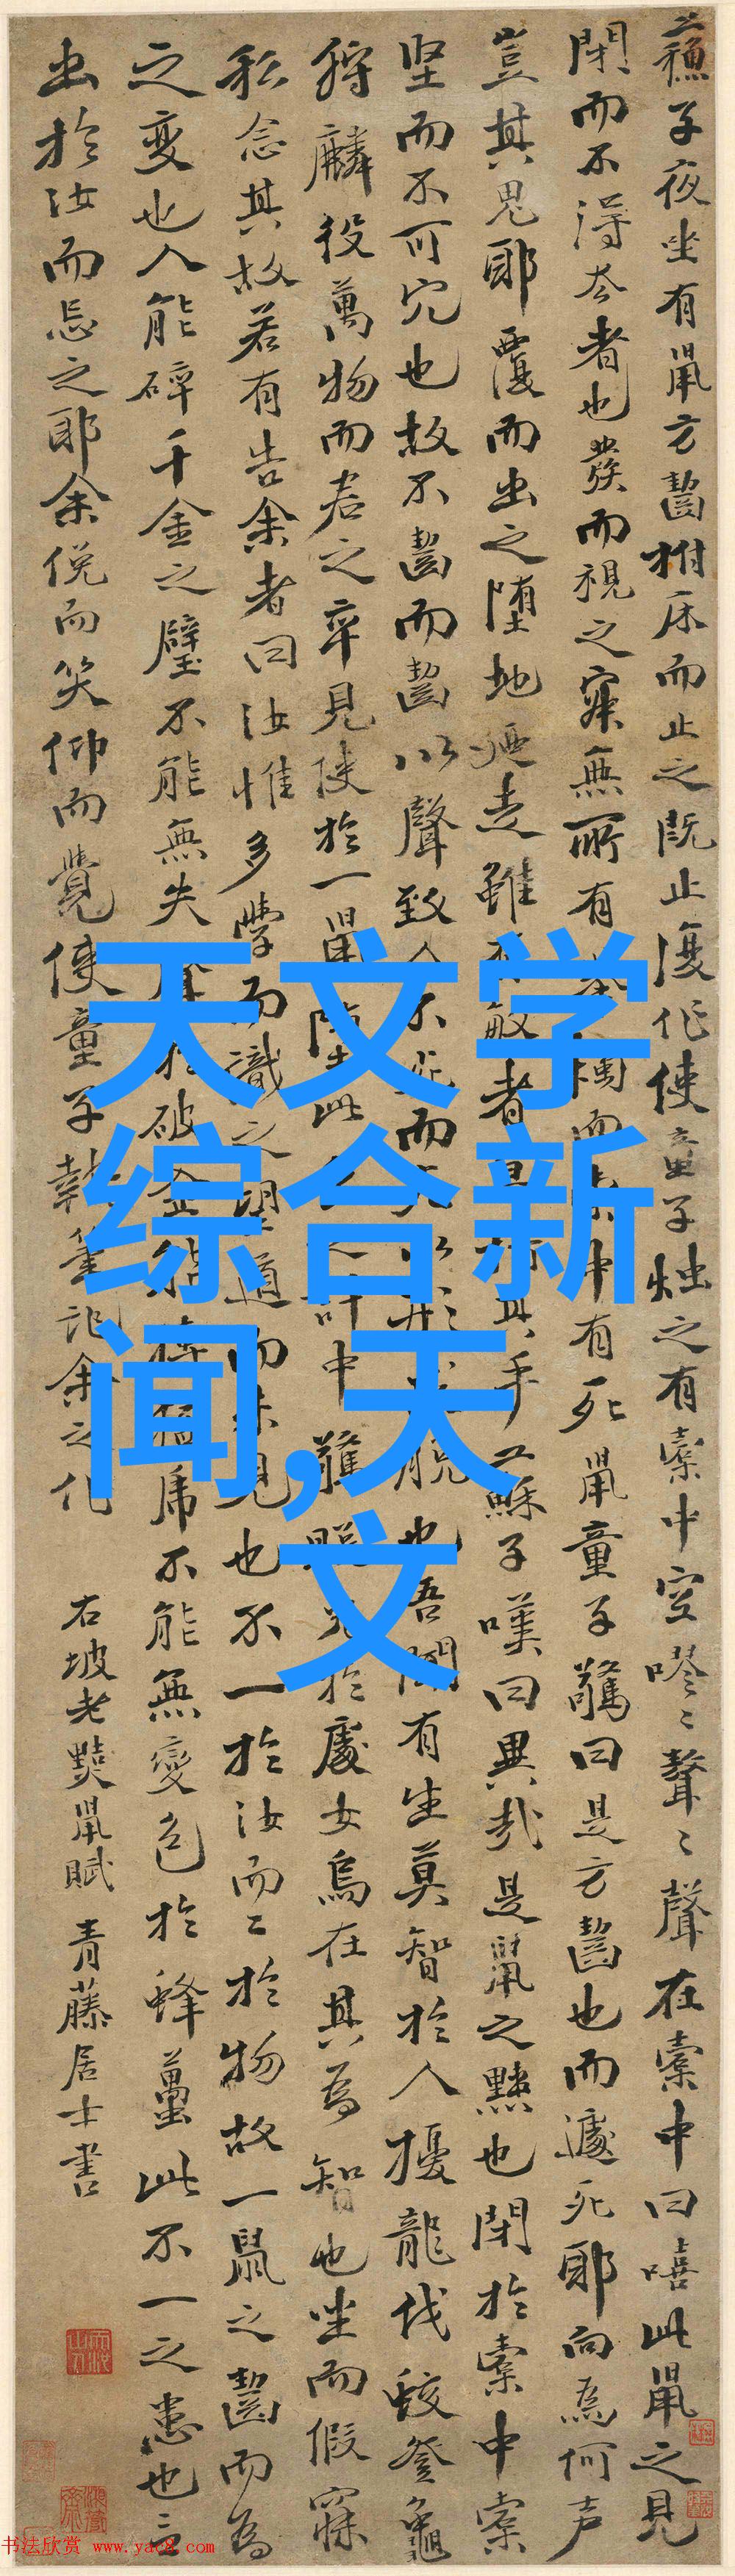 蘓子夜坐有鼠方齧拊床而止之既止復作使童子燭之有橐中空嘐〻聱〻聲在橐中曰嘻此鼠之見
閉而不得去者也發而視之寂無所有舉燭而索中有死鼠童子驚曰是方齧也而遽死耶向為何声
豈其鬼耶覆而出之墮地廼走雖有敏者莫措其手蘇子嘆曰異哉是鼠之黠也閉於橐中橐
坚而不可穴也故不齧而齧以聲致人不死而死以形求脱也吾聞有生莫智於人擾龍伐蛟登龜
狩麟役萬物而君之卒見使於一鼠墮此蟲之計中驚脱兔於處女烏在其為智也坐而假寐
私念其故若有告余者曰汝惟多學而識之望道而未見也不一於汝而二於物故一鼠之齧而為
之變也人能碎千金之璧不能無失聲於破釜能搏猛虎不能無變色於蜂蠆此不一之患也言
出於汝而忘之耶余俛而笑仰而覺使童子執筆記余之作
右坡老黠鼠賦 青藤居士書
天文学
综合新
闻,天
文
书法欣赏 www.yac8.com